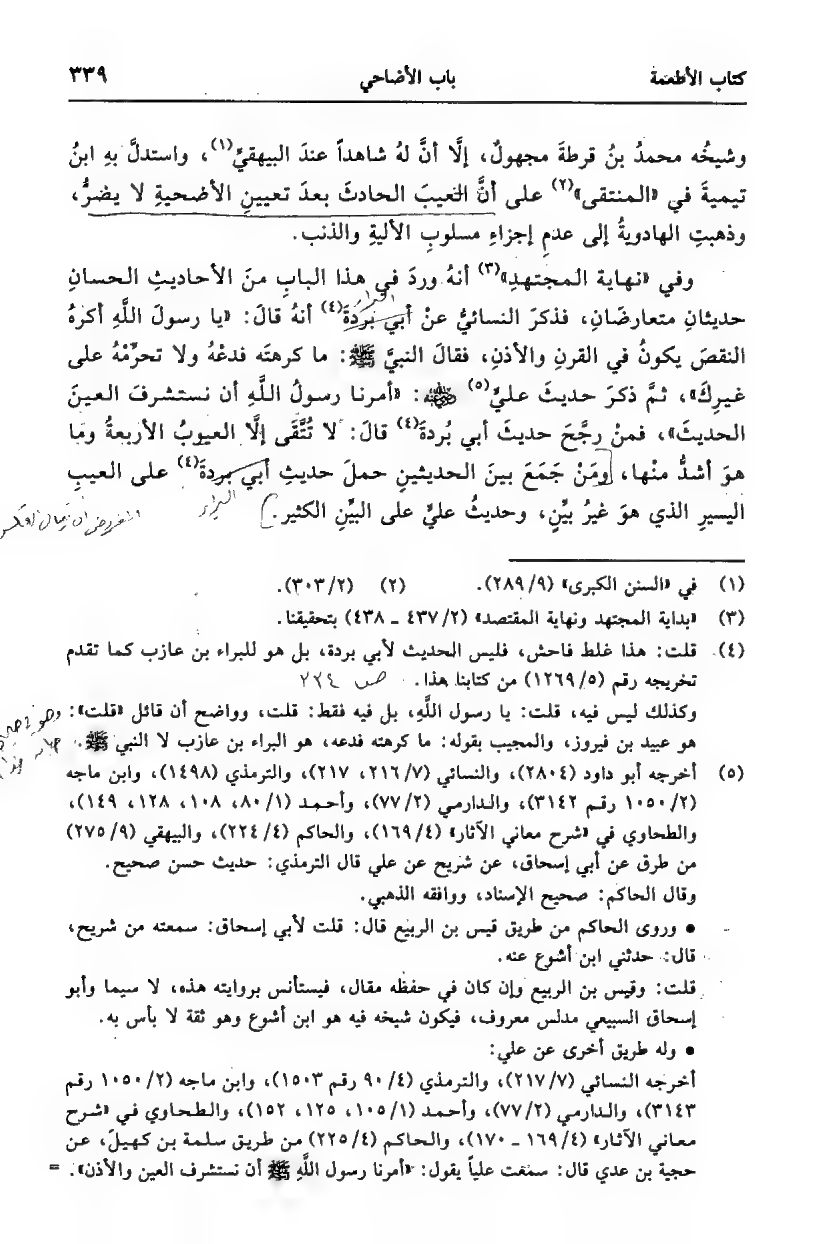 كتاب الأطعمة باب الأضاحي ٣٣٩
وشيخُه محمدُ بنُ قرطةَ مجهولٌ، إلَّا أنَّ لهُ شاهداً عندَ البيهقيِّ(١)، واستدلَّ بهِ ابنُ
تيميةَ في «المنتقى»(٢) على أنَّ العيبَ الحادثَ بعدَ تعيينِ الأضحيةِ لا يضرُّ،
وذهبتِ الهادويةُ إلى عدمِ إجزاءِ مسلوبِ الأليةِ والذنب.
وفي «نهاية المجتهدِ»(٣) أنهُ وردَ في هذا البابِ منَ الأحاديثِ الحسانِ
البراء
حديثانِ متعارضَانِ، فذكرَ النسائيُّ عنْ أبي بُردَةَ(٤) أنهُ قالَ: «يا رسولَ اللَّهِ أكرهُ
النقصَ يكونُ في القرنِ والأذنِ، فقالَ النبيُّ ﷺ: ما كرهتَه فدعْهُ ولا تحرِّمْهُ على
غيرِكَ»، ثمَّ ذكرَ حديثَ عليٍّ(٥) رضي الله عنه: «أمرنا رسولُ اللَّهِ أن نستشرفَ العينَ
الحديثَ»، فمنْ رجَّحَ حديثَ أبي بُردةَ(٤) قالَ: لا تُتَّقَى إلَّا العيوبُ الأربعةُ وما
هوَ أشدُّ منْها، ومَنْ جَمَعَ بينَ الحديثينِ حملَ حديثِ أبي بردةَ(٤) على العيبِ
اليسيرِ الذي هوَ غيرُ بيِّنٍ، وحديثُ عليٍّ على البيِّنِ الكثير.
البراء
المفروض ان يقال العكس
(١) في «السنن الكبرى» (٢٨٩/٩). (٢) (٣٠٣/٢).
(٣) «بداية المجتهد ونهاية المقتصد» (٤٣٧/٢ ـ ٤٣٨) بتحقيقنا.
(٤) قلت: هذا غلط فاحش، فليس الحديث لأبي بردة، بل هو للبراء بن عازب كما تقدم
تخريجه رقم (١٢٦٩/٥) من كتابنا هذا. ص ٢٢٤
وكذلك ليس فيه، قلت: يا رسول اللَّهِ، بل فيه فقط: قلت، وواضح أن قائل «قلت»:
هو عبيد بن فيروز، والمجيب بقوله: ما كرهته فدعه، هو البراء بن عازب لا النبي ﷺ.
(٥) أخرجه أبو داود (٢٨٠٤)، والنسائي (٢١٦/٧، ٢١٧)، والترمذي (١٤٩٨)، وابن ماجه
(١٠٥٠/٢ رقم ٣١٤٢)، والدارمي (٧٧/٢)، وأحمد (٨٠/١، ١٠٨، ١٢٨، ١٤٩)،
والطحاوي في «شرح معاني الآثار» (١٦٩/٤)، والحاكم (٢٢٤/٤)، والبيهقي (٢٧٥/٩)
من طرق عن أبي إسحاق، عن شريح عن علي قال الترمذي: حديث حسن صحيح.
وقال الحاكم: صحيح الإسناد، ووافقه الذهبي.
• وروى الحاكم من طريق قيس بن الربيع قال: قلت لأبي إسحاق: سمعته من شريح،
قال: حدثني ابن أشوع عنه.
قلت: وقيس بن الربيع وإن كان في حفظه مقال، فيستأنس بروايته هذه، لا سيما وأبو
إسحاق السبيعي مدلس معروف، فيكون شيخه فيه هو ابن أشوع وهو ثقة لا بأس به.
• وله طريق أخرى عن علي:
أخرجه النسائي (٢١٧/٧)، والترمذي (٩٠/٤ رقم ١٥٠٣)، وابن ماجه (١٠٥٠/٢ رقم
٣١٤٣)، والدارمي (٧٧/٢)، وأحمد (١٠٥/١، ١٢٥، ١٥٢)، والطحاوي في «شرح
معاني الآثار» (١٦٩/٤ ـ ١٧٠)، والحاكم (٢٢٥/٤) من طريق سلمة بن كهيل، عن
حجية بن عدي قال: سمعت علياً يقول: «أمرنا رسول اللَّهِ ﷺ أن نستشرف العين والأذن». =